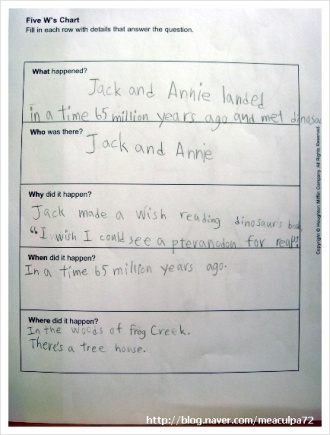 Five W's Chart
Fill in each row with details that answer the question.
What happened?
Jack and Annie landed
in a time 65 million years ago and met dinosau
Who was there?
Jack and Annie
Why did it happen?
Jack made a wish reading dinosaurs book
"I wish I could see a pteranodon for real".
When did it happen?
In a time 65 million years ago.
Where did it happen?
In the woods of Frog Creek.
There's a tree house.
Copyright © Houghton Mifflin Company. All Rights Reserved.
http://blog.naver.com/meaculpa72